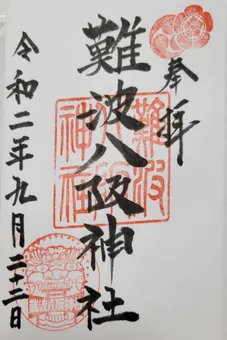 奉拝
難波八阪神社
令和二年九月二十二日
難波
八阪
神社
難波八阪神社